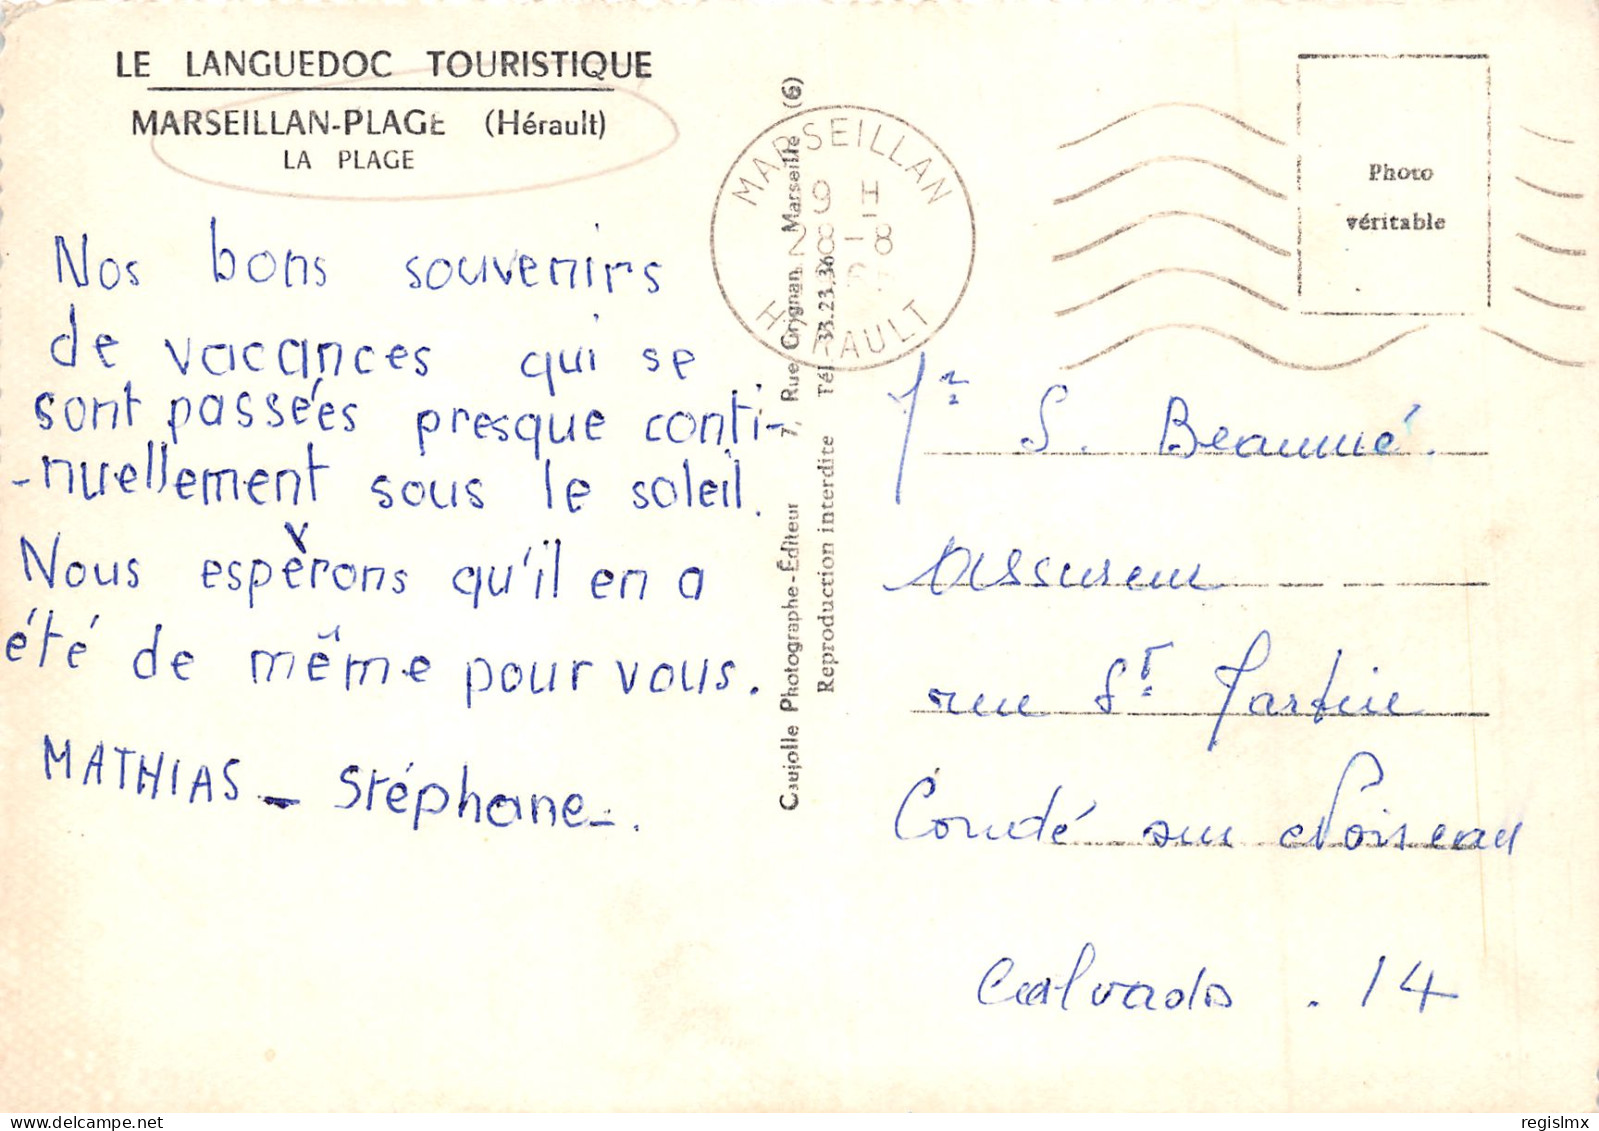 LE LANGUEDOC TOURISTIQUE
MARSEILLAN-PLAGE (Hérault)
LA PLAGE
Nos bons souvenirs
de vacances qui se
sont passées presque conti-
-nuellement sous le soleil.
Nous espèrons qu'il en a
été de même pour vous.
MATHIAS - Stéphane -.
Caujolle Photographe-Éditeur 7, Rue Grignan Marseille (6)
Reproduction interdite Tél. 33.23.36
MARSEILLAN
9 H
28-8
HÉRAULT
Photo
véritable
S. Beaumé.
Assureur
rue St Martin
Condé sur Noireau
Calvados . 14
regislmx